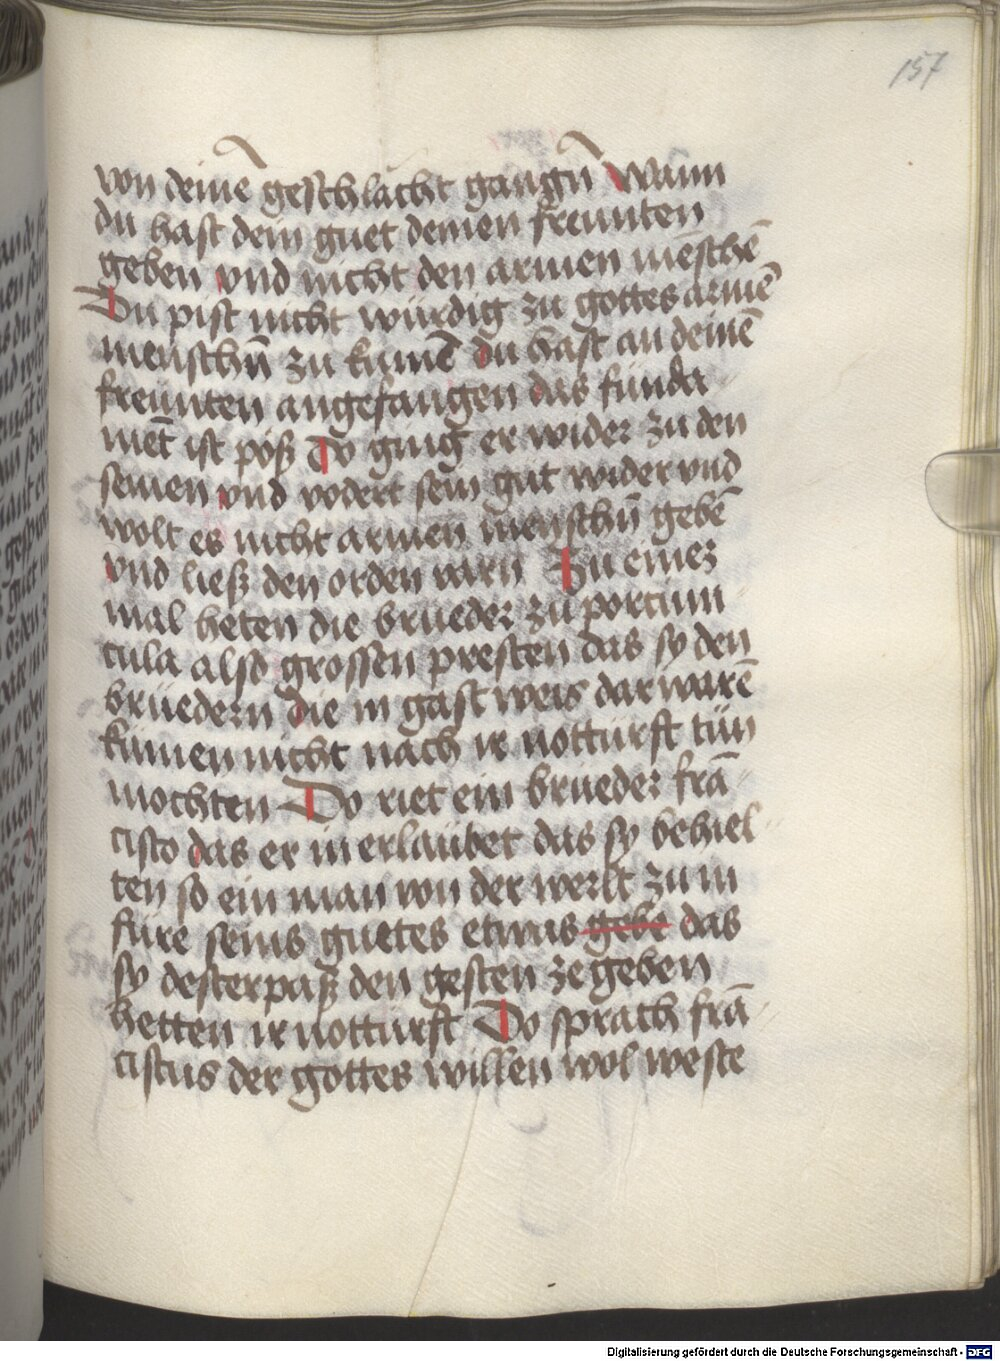 157
von deinē geschlächt gangn̄ Wann
du hast dein guet deinen freunten
geben vnd nicht den armen mēschē
Du pist nicht würdig zu gottes armē
menschn̄ zu kumē du hast an deinē
freunten angefangen das funda
mēt ist pöß Do ging er wider zu den
seinen vnd vodert sein gut wider vnd
wolt es nicht armen menschn̄ gebē
vnd ließ den orden varn Zu einez
mal heten die brueder zu porcium
cula also grossen presten das sy den
brüedern die in gast weis dar warē
kumen nicht nach ir notturft tün
mochten Do riet ein brueder frā
cisco das er in erlaübet das sy behiel
ten so ein man von der werlt zu in
füre seins guetes etwas gebe das
sy desterpaß den gesten ze geben
hetten ir notturft Do sprach frā
ciscus der gottes willen wol weste
Digitalisierung gefördert durch die Deutsche Forschungsgemeinschaft - DFG